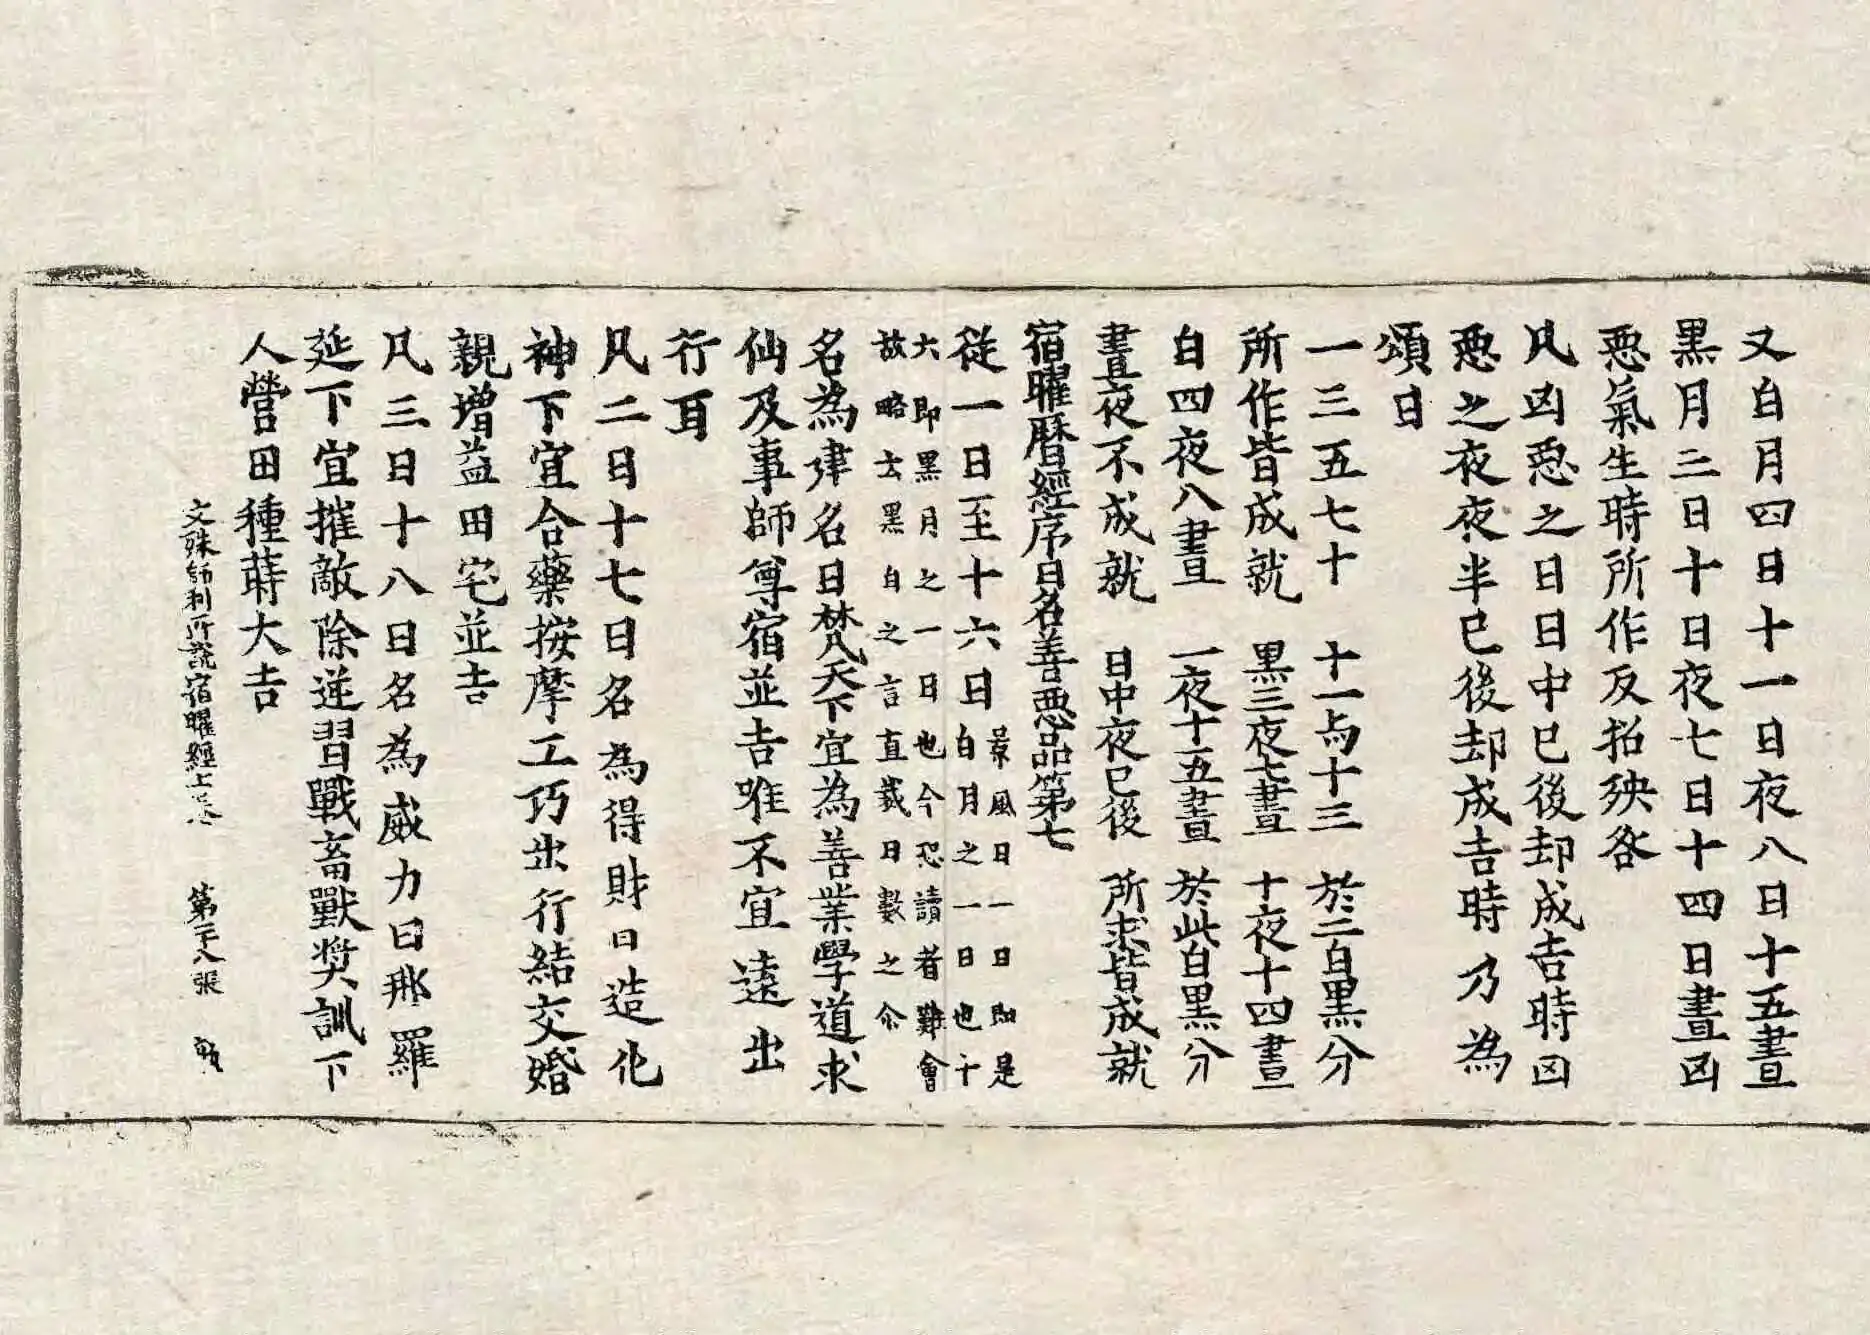 又白月四日十一日夜八日十五晝
黑月三日十日夜七日十四日晝凶
惡氣生時所作反招殃咎
凡凶惡之日日中已後却成吉時凶
惡之夜夜半已後却成吉時乃為
頌曰
一三五七十　十一与十三　於二白黑分
所作皆成就　黑三夜七晝　十夜十四晝
白四夜八晝　一夜十五晝　於此白黑分
晝夜不成就　日中夜已後　所求皆成就
宿曜曆經序日名善惡品第七
從一日至十六日
景風日一日即是
白月之一日也十
六即黑月之一日也今恐讀者難會
故略去黑白之言直裁日數之尒
名為建名日梵天下宜為善業學道求
仙及事師尊宿並吉唯不宜遠出
行耳
凡二日十七日名為得財日造化
神下宜合藥按摩工巧出行結交婚
親增益田宅並吉
凡三日十八日名為威力日那羅
延下宜摧敵除逆習戰畜獸獎訓下
人營田種蒔大吉
文殊師利所說宿曜經上卷　第二十八張